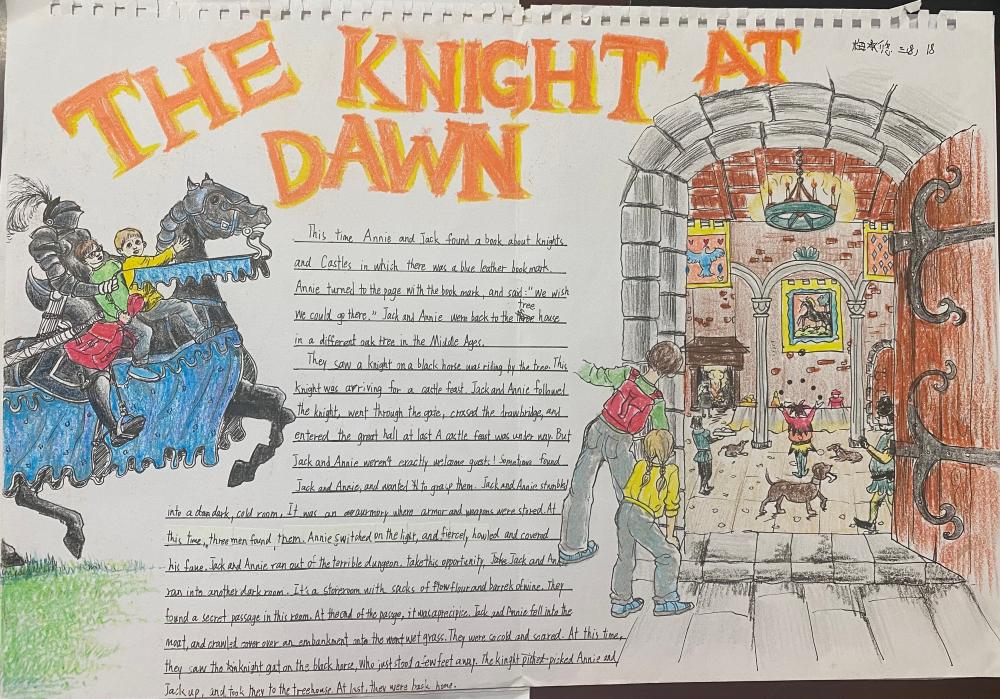 THE KNIGHT AT
DAWN
三(8) 18
This time Annie and Jack found a book about knights
and Castles in which there was a blue leather bookmark.
Annie turned to the page with the book mark, and said: "We wish
We could go there." Jack and Annie were back to the tree house
in a different oak tree in the Middle Ages.
They saw a knight on a black horse was riding by the tree. This
knight was arriving for a castle feast. Jack and Annie followed
the knight, went through the gate, crossed the drawbridge, and
entered the great hall at last. A castle feast was under way. But
Jack and Annie weren't exactly welcome guest! Sometime found
Jack and Annie, and wanted to grasp them. Jack and Annie stumbled
into a dark, cold room. It was an armory where armor and weapons were stored. At
this time, three men found them. Annie switched on the light, and fiercel, howled and covered
his face. Jack and Annie ran out of the terrible dungeon. Take this opportunity, Jack and Annie
ran into another dark room. It's a storeroom with sacks of flour and barrels of wine. They
found a secret passage in this room. At the end of the passge, it was a precipice. Jack and Annie fell into the
moat, and crawled over an embankment onto the wet grass. They were so cold and scared. At this time,
they saw the knight got on the black horse, Who just stood a few feet away. The kinght picked Annie and
Jack up, and took they to the treehouse. At last, they were back home.